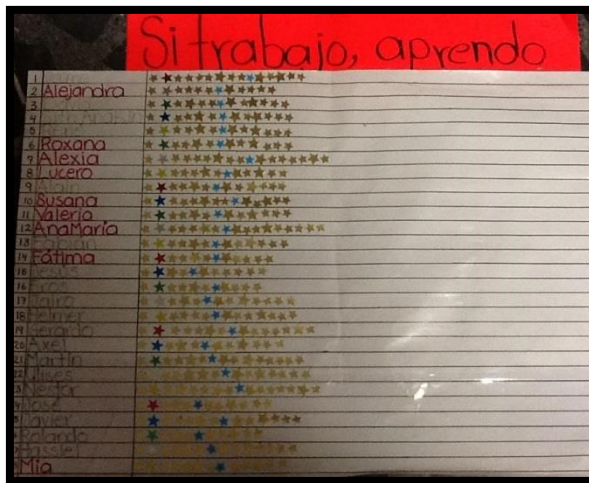 Si trabajo, aprendo
1
2 Alejandra
3
4
5
6 Roxana
7 Alexia
8 Lucero
9 Alain
10 Susana
11 Valeria
12 AnaMaría
13 Fabián
14 Fátima
15 Jesús
16 Eros
17 Jairo
18 Helmer
19 Gerardo
20 Axel
21 Martín
22 Ulises
3 Néstor
José
Javier
Rolando
Mia